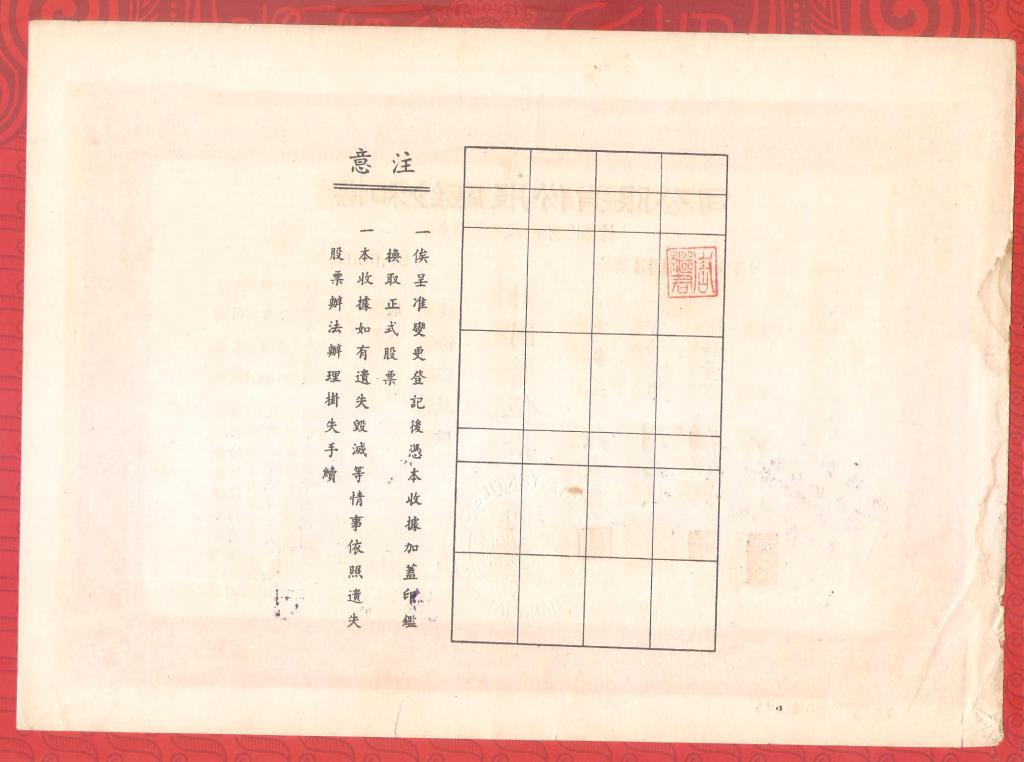 注意
一俟呈准變更登記後憑本收據加蓋印鑑
換取正式股票
一本收據如有遺失毀滅等情事依照遺失
股票辦法辦理掛失手續